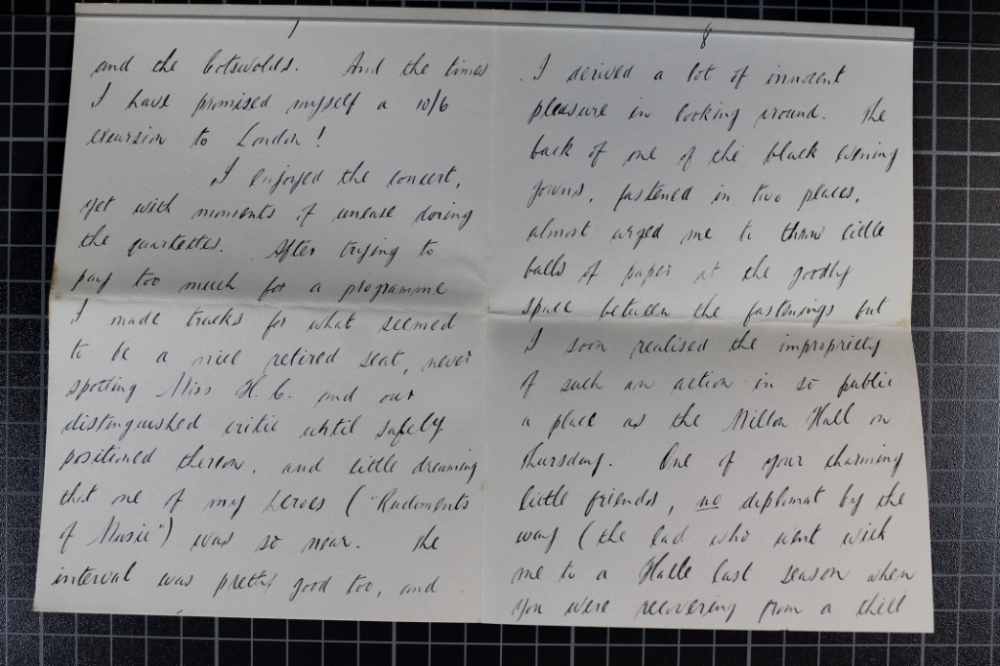 7
and the Cotswolds. And the times
I have promised myself a 10/6
excursion to London!
I enjoyed the concert,
yet with moments of unease during
the quartettes. After trying to
pay too much for a programme
I made tracks for what seemed
to be a nice retired seat, never
spotting Miss H. C. and our
distinguished critic until safely
positioned thereon, and little dreaming
that one of my heroes ("Rudiments
of Music") was so near. The
interval was pretty good too, and
8
I derived a lot of innocent
pleasure in looking around. The
back of one of the black evening
gowns, fastened in two places,
almost urged me to throw little
balls of paper at the goodly
space between the fastenings but
I soon realised the impropriety
of such an action in so public
a place as the Milton Hall on
Thursday. One of your charming
little friends, no diplomat by the
way (the lad who went with
me to a Halle last season when
you were recovering from a chill